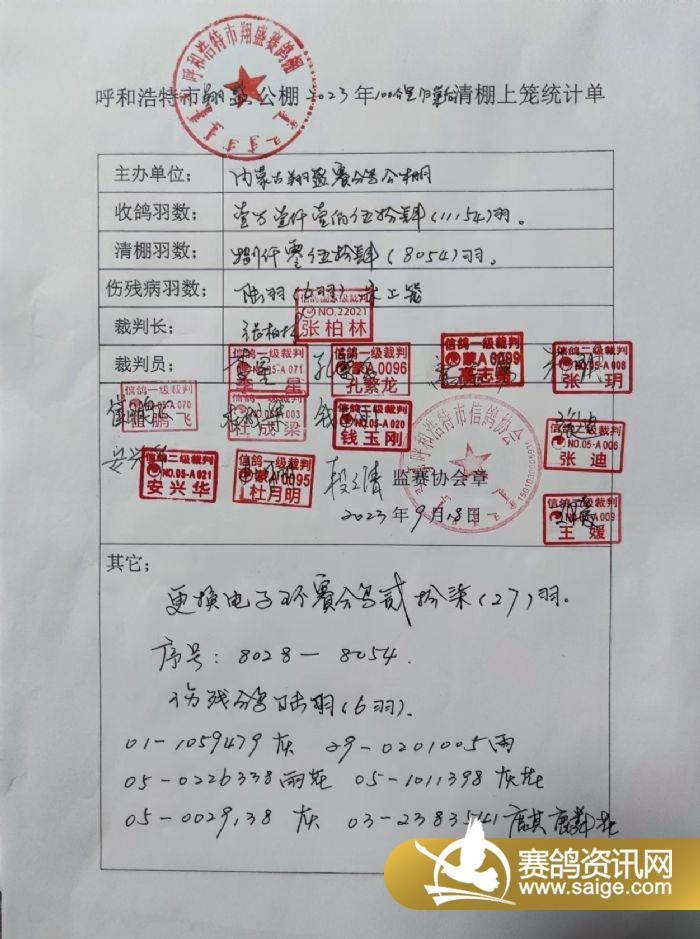 呼和浩特市翔盛赛鸽公棚
呼和浩特市翔盛公棚2023年100公里归巢后清棚上笼统计单
主办单位： 内蒙古翔盛赛鸽公棚
收鸽羽数： 壹万壹仟壹佰伍拾肆(11154)羽。
清棚羽数： 捌仟零伍拾肆(8054)羽。
伤残病羽数： 陆羽(6羽)未上笼
裁判长： 张柏林
信鸽国家级裁判
NO.22021
张柏林
裁判员：
信鸽一级裁判
NO.05-A071
李星
信鸽一级裁判
蒙A0096
孔繁龙
信鸽一级裁判
蒙A0099
高志
信鸽二级裁判
NO.05-A008
张玥
NO.05-A070
崔鹏飞
NO.05-A003
杜成梁
信鸽一级裁判
NO.05-A020
钱玉刚
信鸽二级裁判
NO.05-A006
张迪
信鸽二级裁判
NO.05-A021
安兴华
信鸽一级裁判
蒙A0095
杜月明
信鸽二级裁判
NO.05-A009
王媛
呼和浩特市信鸽协会
监赛协会章
2023年9月18日
其它；
更换电子环赛鸽贰拾柒(27)羽.
序号：8028—8054.
伤残鸽陆羽(6羽).
01-1059479灰 29-0201005雨
05-0226338雨花 05-1011398灰花
05-0029138 灰 03-2383541麒麟花
赛鸽资讯网
www.saige.com